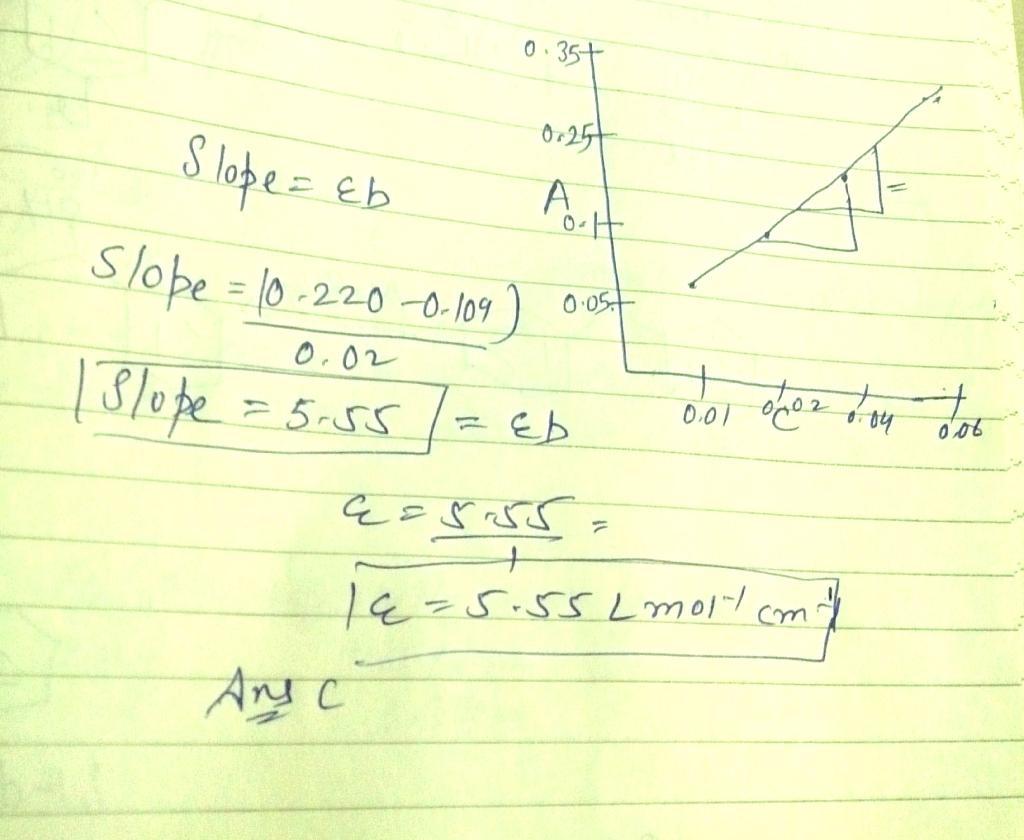 0.35
0.25
Slope = εb
A
0.1
Slope = (0.220 - 0.109)
0.02
0.05
Slope = 5.55 = εb
0.01 0.02 0.04 0.06
C
ε = 5.55 =
1
ε = 5.55 L mol⁻¹ cm⁻¹
Ans C